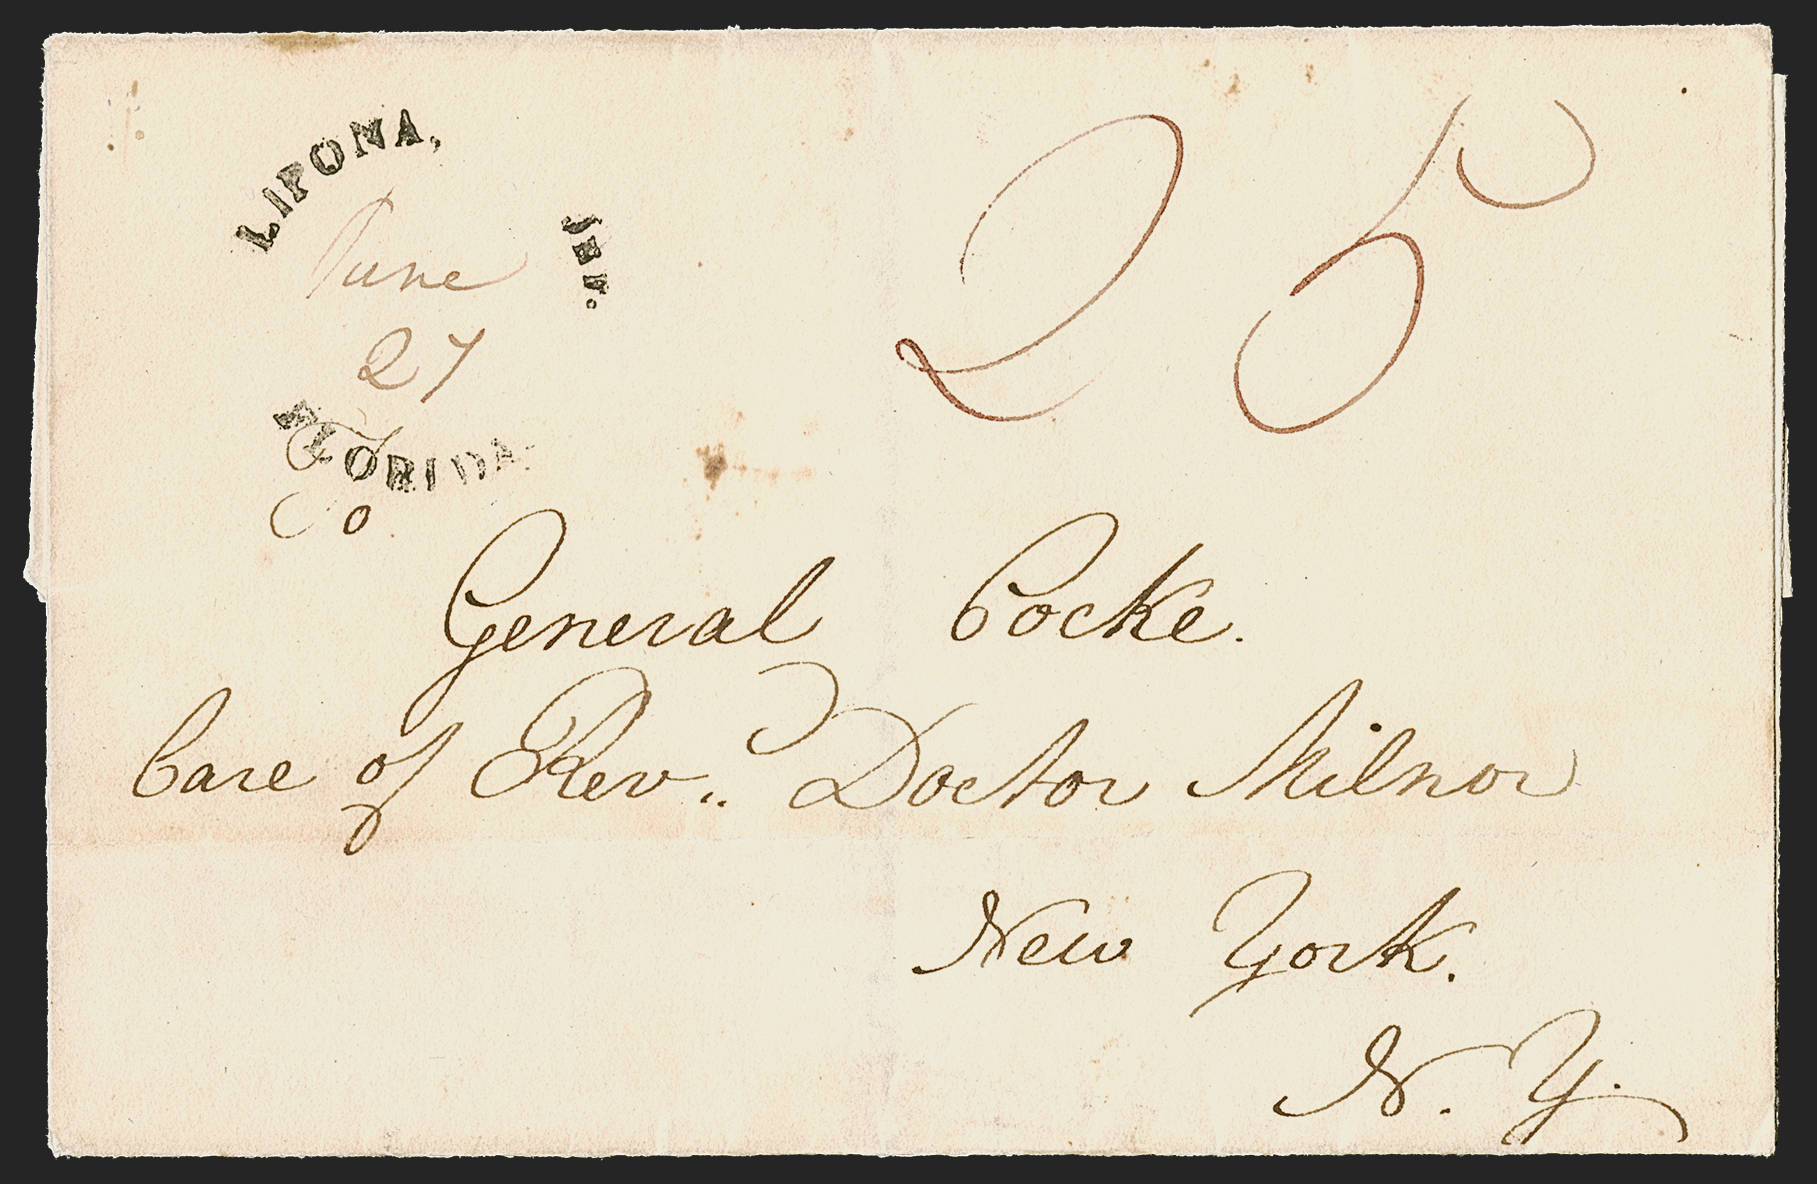 LIPONA,
June
27
FLORIDA
25
To
General Cocke.
Care of Rev.. Doctor Milnor
New York.
N. Y.